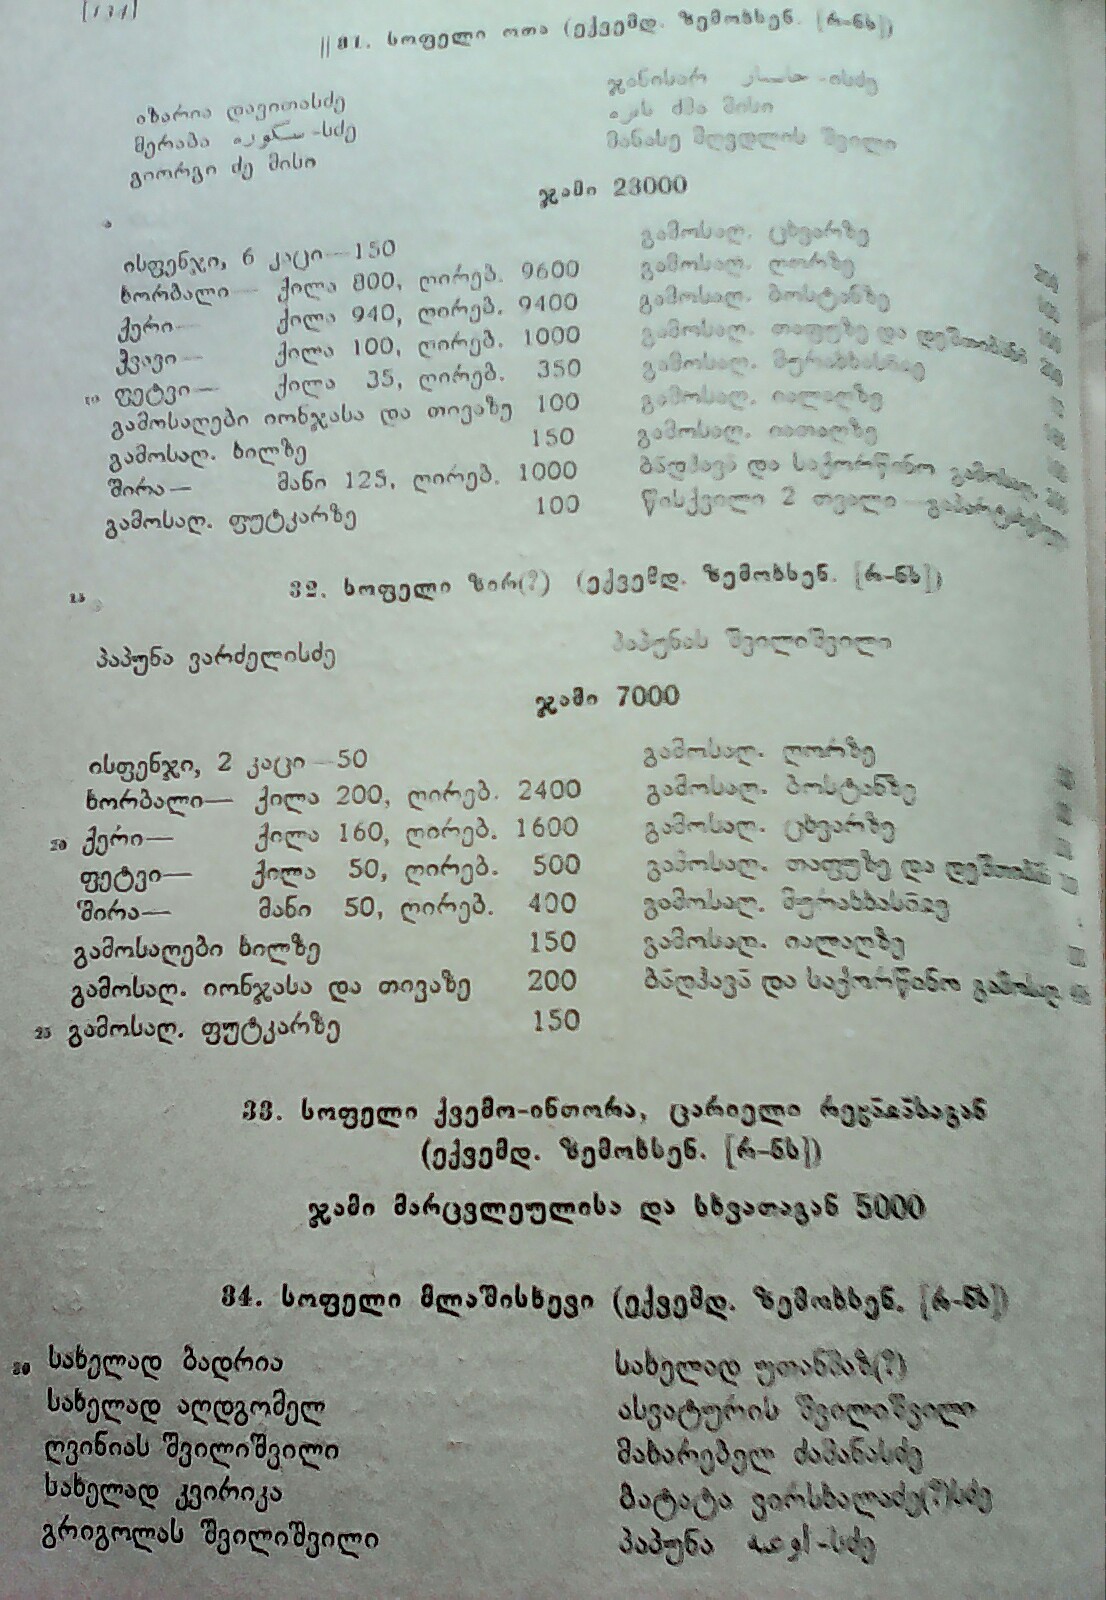 [131]
|| 31. სოფელი ოთა (ექვემდ. ზემოხსენ. [რ-ნს])
აზარია დავითასძე
მერაბა -სძე
გიორგი ძე მისი
ჯანისარ -ისძე
ძმა მისი
მანასე მღვდლის შვილი
ჯამი 23000
ისფენჯი, 6 კაცი—150
ხორბალი— ქილა 800, ღირებ. 9600
ქერი— ქილა 940, ღირებ. 9400
ჭვავი— ქილა 100, ღირებ. 1000
10 ფეტვი— ქილა 35, ღირებ. 350
გამოსაღები იონჯასა და თივაზე 100
გამოსაღ. ხილზე 150
შირა— მანი 125, ღირებ. 1000
გამოსაღ. ფუტკარზე 100
გამოსაღ. ცხვარზე
გამოსაღ. ღორზე
გამოსაღ. ბოსტანზე
გამოსაღ. თაფუზე და დეშთიბანზე
გამოსაღ.
გამოსაღ. იალაღზე
გამოსაღ. იათაღზე
ბადჰავა და საქორწინო გამოსაღ.
წისქვილი 2 თვალი—
15 32. სოფელი ზირ(?) (ექვემდ. ზემოხსენ. [რ-ნს])
პაპუნა ვარძელისძე
პაპუნას შვილიშვილი
ჯამი 7000
ისფენჯი, 2 კაცი—50
ხორბალი— ქილა 200, ღირებ. 2400
20 ქერი— ქილა 160, ღირებ. 1600
ფეტვი— ქილა 50, ღირებ. 500
შირა— მანი 50, ღირებ. 400
გამოსაღები ხილზე 150
გამოსაღ. იონჯასა და თივაზე 200
25 გამოსაღ. ფუტკარზე 150
გამოსაღ. ღორზე
გამოსაღ. ბოსტანზე
გამოსაღ. ცხვარზე
გამოსაღ. თაფუზე და
გამოსაღ.
გამოსაღ. იალაღზე
ბადჰავა და საქორწინო გამოსაღ.
33. სოფელი ქვემო-ინთორა, ცარიელი რეაიასაგან
(ექვემდ. ზემოხსენ. [რ-ნს])
ჯამი მარცვლეულისა და სხვათაგან 5000
34. სოფელი მლაშისხევი (ექვემდ. ზემოხსენ. [რ-ნს])
30 სახელად ბადრია
სახელად აღდგომელ
ღვინიას შვილიშვილი
სახელად კვირიკა
გრიგოლას შვილიშვილი
სახელად
ასვატურის შვილიშვილი
მახარებელ ძამანასძე
ბატატა
პაპუნა -სძე